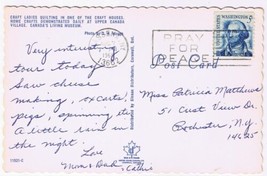 CRAFT LADIES BUILDING IN ONE OF THE CRAFT HOUSES.
HOME CRAFTS DEMONSTRATED DAILY AT UPPER CANADA
VILLAGE, CANADA'S LIVING MUSEUM.
Very interesting
tour today
Saw cheese
making, oxcarts,
pigs, spinning etc
A little rain in
the night.
Love
Mom & Dad
PRAY
FOR
PEACE
WASHINGTON
Post Card
Miss Patricia Matthews
51 Crest View Dr
Rochester, N.Y.
14625